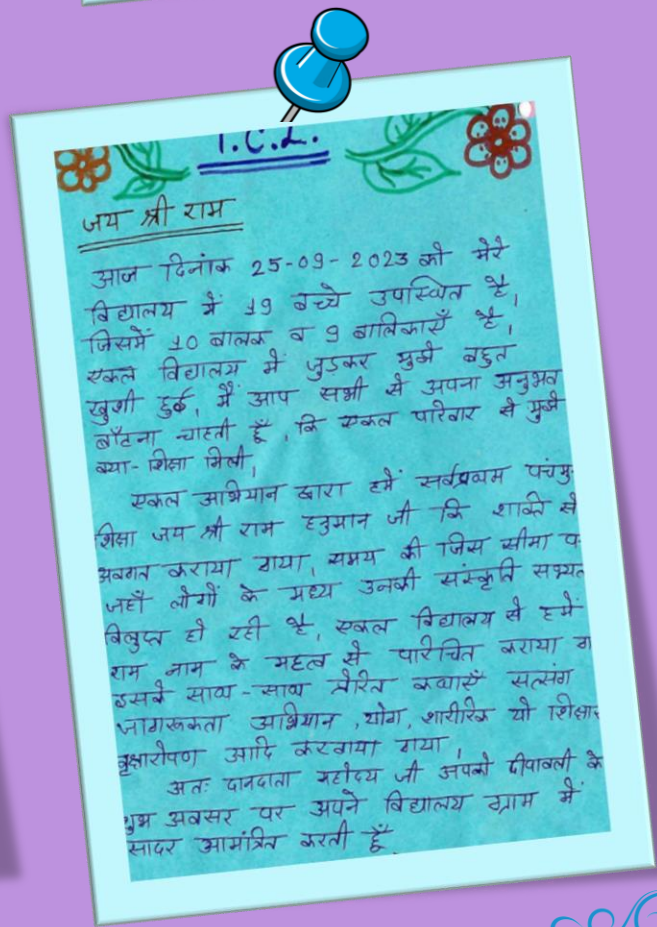 I.C.L.
जय श्री राम
आज दिनांक 25-09-2023 को मेरे
विद्यालय में 19 बच्चे उपास्थित है,
जिसमें 10 बालक व 9 बालिकाएँ है,
एकल विद्यालय में जुडकर मुझे बहुत
खुशी हुई, मैं आप सभी से अपना अनुभव
बाँटना चाहती हूँ, कि एकल परिवार से मुझे
क्या-शिक्षा मिली,
एकल आभियान द्वारा हमें सर्वप्रथम पंचमु
शिक्षा जय श्री राम हनुमान जी कि शाक्ति से
अवगत कराया गया, समय की जिस सीमा प
जहाँ लोगों के मध्य उनकी संस्कृति सभ्यत
विलुप्त हो रही है, एकल विद्यालय से हमें
राम नाम के महत्व से पारिचित कराया ग
इसके साथ-साथ प्रेरित कथाएँ सत्संग
जागरूकता आभियान, योग, शारीरिक यो शिक्षा
वृक्षारोपण आदि करवाया गया,
अतः दानदाता महोदय जी अपको दीपावली के
शुभ अवसर पर अपने विद्यालय ग्राम में
सादर आमंत्रित करती हूँ